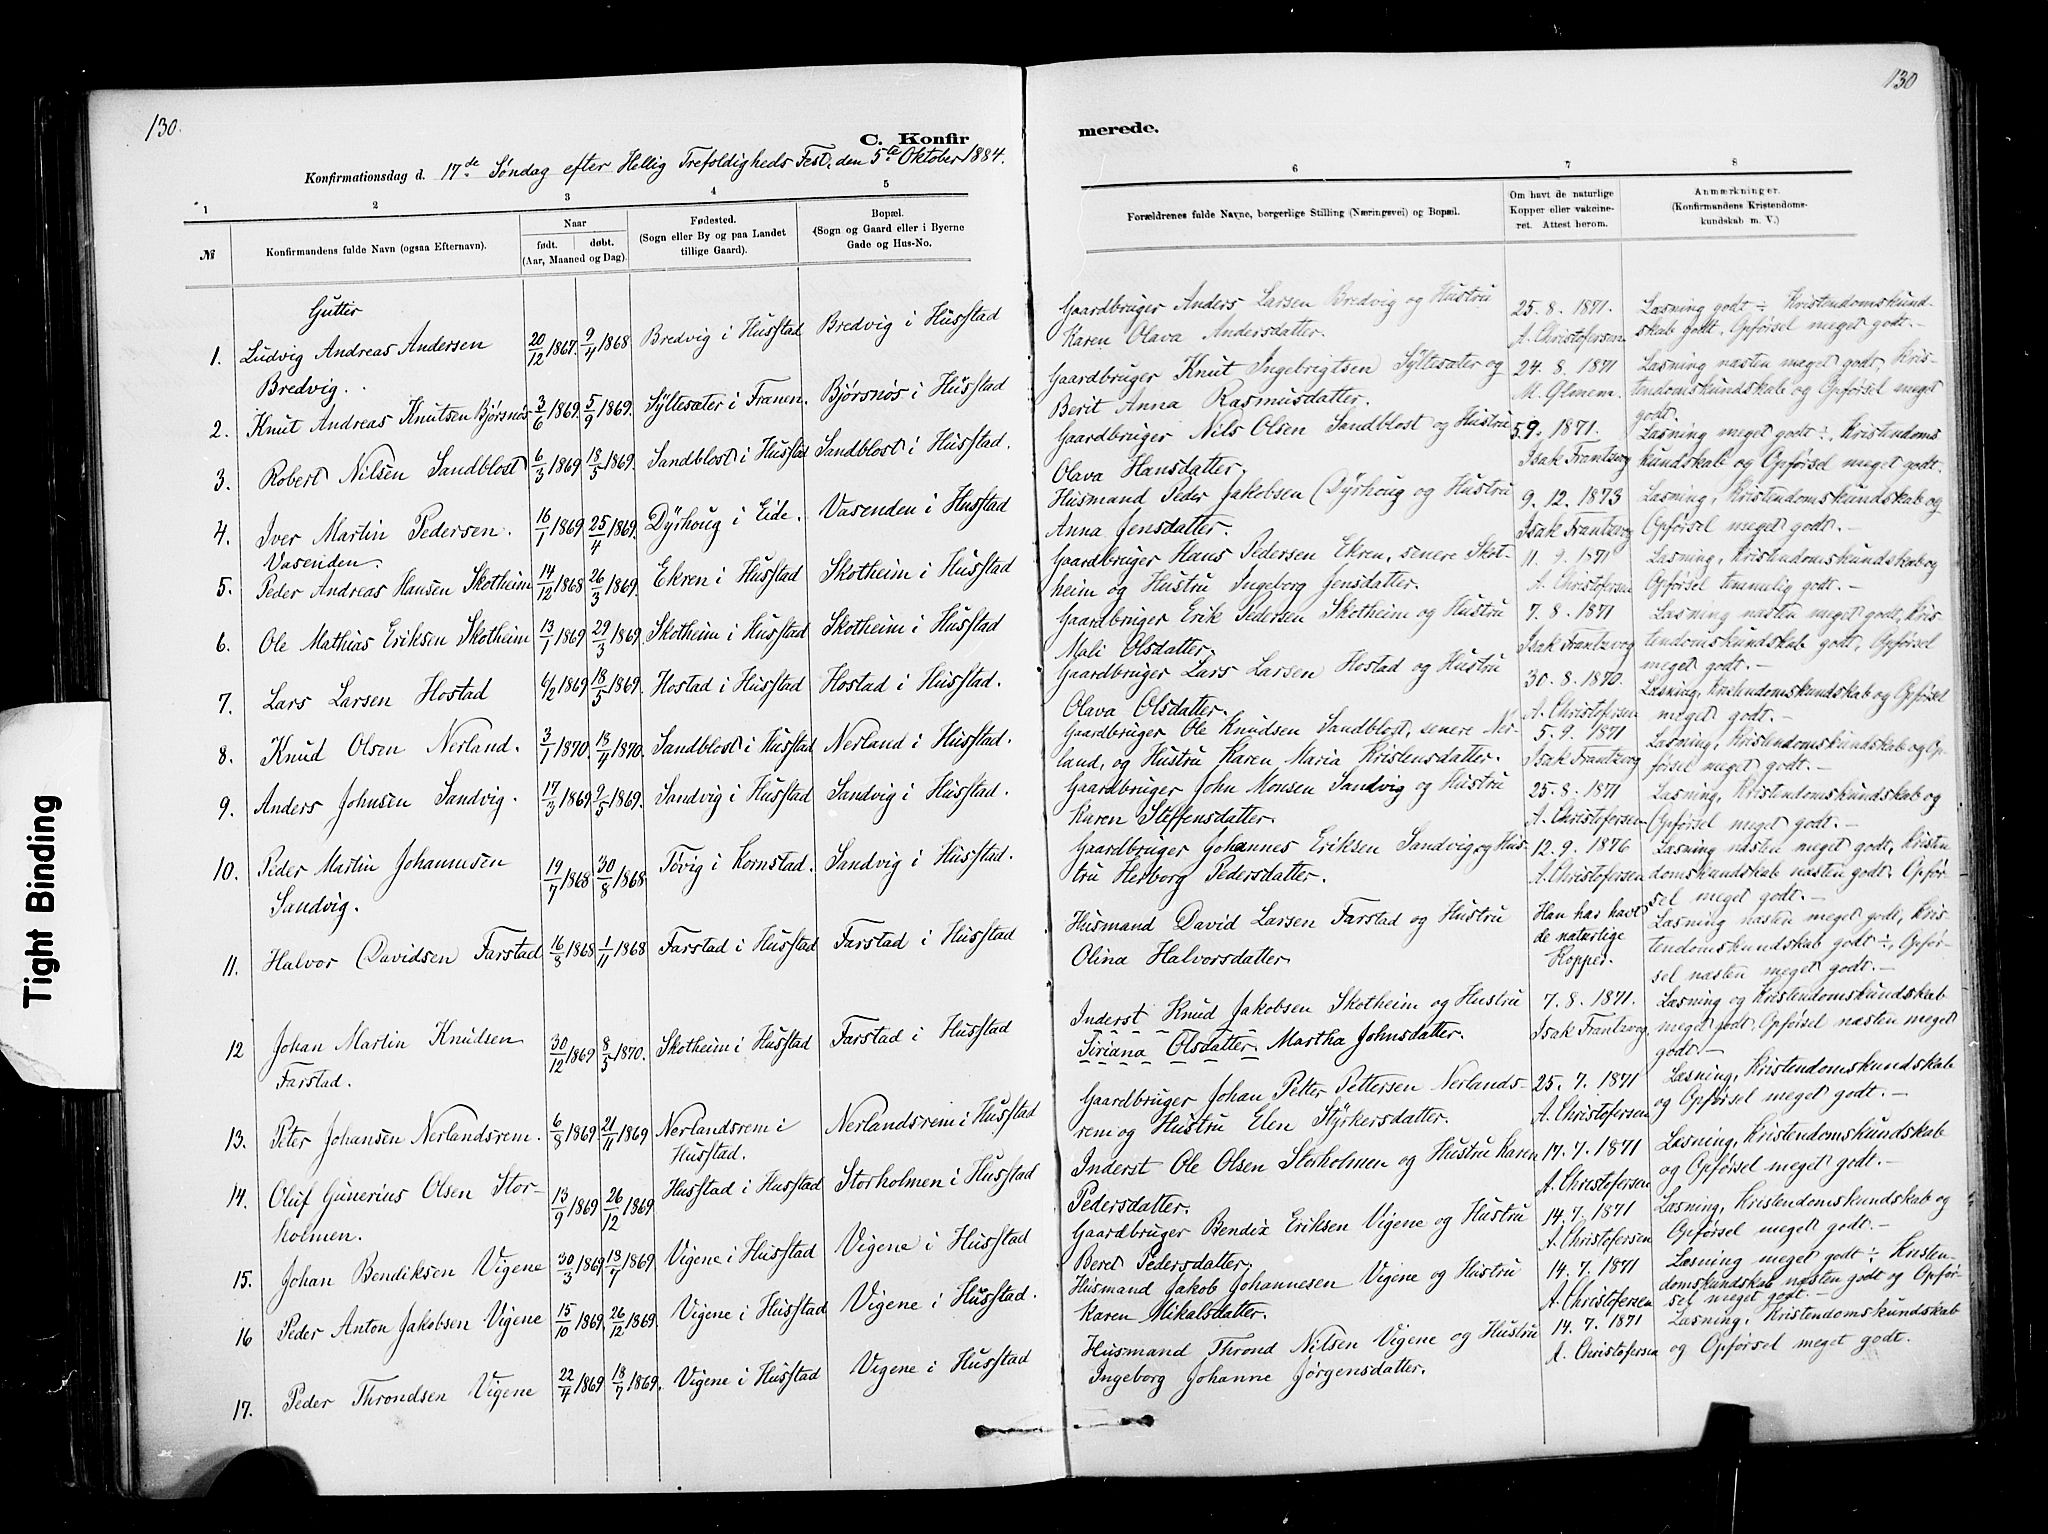 130.
C. Konfir
Konfirmationsdag d. 17de Søndag efter Hellig Trefoldigheds Fest, den 5te Oktober 1884.
1 2 3 4 5
№
Konfirmandens fulde Navn (ogsaa Efternavn).
Naar
født. døbt.
(Aar, Maaned og Dag).
Fødested.
(Sogn eller By og paa Landet
tillige Gaard).
Bopæl.
(Sogn og Gaard eller i Byerne
Gade og Hus-No.
Gutter
1. Ludvig Andreas Andersen 20/12 1867. 9/4 1868 Bredvig i Husstad Bredvig i Husstad
Bredvig.
2. Knut Andreas Knutsen Bjørsnøs 3/6 1869. 5/9 1869. Syltesæter i Franen. Bjørsnøs i Husstad
3. Robert Nilsen Sandblost 6/3 1869 18/5 1869. Sandblost i Husstad Sandblost i Husstad.
4. Iver Martin Pedersen. 16/1 1869 25/4 1869. Dyrhoug i Eide. Vasenden i Husstad
Vasenden.
5. Peder Andreas Hansen Skotheim 14/12 1868 26/3 1869. Ekren i Husstad Skotheim i Husstad
6. Ole Mathias Eriksen Skotheim 13/1 1869 29/3 1869. Skotheim i Husstad Skotheim i Husstad
7. Lars Larsen Hostad 6/2 1869 18/5 1869. Hostad i Husstad Hostad i Husstad.
8. Knud Olsen Nerland. 3/1 1870. 18/4 1870. Sandblost i Husstad Nerland i Husstad.
9. Anders Johnsen Sandvig. 17/3 1869 9/5 1869. Sandvig i Husstad Sandvig i Husstad.
10. Peder Martin Johannesen 19/7 1868 30/8 1868. Tøvig i Kornstad. Sandvig i Husstad.
Sandvig.
11. Halvor Davidsen Farstad 16/8 1868 1/11 1868 Farstad i Husstad Farstad i Husstad
12 Johan Martin Knudsen 30/12 1869 8/5 1870. Skotheim i Husstad Farstad i Husstad
Farstad.
13. Peter Johansen Nerlandsrem. 6/8 1869 21/11 1869 Nerlandsrem i Nerlandsrem i Husstad
Husstad.
14. Oluf Gunerius Olsen Stor- 13/9 1869 26/12 1869 Husstad i Husstad Storholmen i Husstad
holmen.
15. Johan Bendiksen Vigene 30/3 1869 18/7 1869 Vigene i Husstad Vigene i Husstad
16 Peder Anton Jakobsen Vigene 15/10 1869. 26/12 1869 Vigene i Husstad Vigene i Husstad.
17. Peder Throndsen Vigene 22/4 1869 18/7 1869. Vigene i Husstad Vigene i Husstad
Tight Binding
130
merede.
6 7 8
Forældrenes fulde Navne, borgerlige Stilling (Næringsvei) og Bopæl.
Om havt de naturlige
Kopper eller vakcine-
ret. Attest herom.
Anmærkninger.
(Konfirmandens Kristendoms-
kundskab m. V.)
Gaardbruger Anders Larsen Bredvig og Hustru 25. 8. 1871. Læsning godt ÷ Kristendomskund-
Karen Olava Andersdatter. A. Christofersen skab godt, Opførsel meget godt.-
Gaardbruger Knut Ingebrigtsen Syltesæter og 24. 8. 1871 Læsning næsten meget godt, Kris-
Berit Anna Rasmusdatter. M. tendomskundskab og Opførsel meget
godt.
Gaardbruger Nils Olsen Sandblost og Hustru 5 9. 1871. Læsning meget godt ÷, Kristendoms
Olava Hansdatter. Isak Frantzvog kundskab og Opførsel meget godt.
Husmand Peder Jakobsen Dyrhoug og Hustru 9. 12. 1873 Læsning, Kristendomskundskab og
Anna Jensdatter. Isak Frantzvog Opførsel meget godt.-
Gaardbruger Hans Pedersen Ekren, senere Skot- 11. 9. 1871 Læsning, Kristendomskundskab og
heim og Hustru Ingeborg Jensdatter. A. Christofersen Opførsel temmelig godt.-
Gaardbruger Erik Pedersen Skotheim og Hustru 7. 8. 1871 Læsning næsten meget godt, Kris-
Mali Olsdatter. Isak Frantzvog tendomskundskab godt, Opførsel
meget godt.-
Gaardbruger Lars Larsen Hostad og Hustru 30. 8. 1870. Læsning, Kristendomskundskab og Opførsel
Olava Olsdatter. A. Christofersen meget godt.-
Gaardbruger Ole Knudsen Sandblost, senere Ner- 5. 9. 1871 Læsning, Kristendomskundskab og Op-
land, og Hustru Karen Maria Kristensdatter. Isak Frantzvog førsel meget godt.-
Gaardbruger John Monsen Sandvig og Hustru 25. 8. 1871 Læsning, Kristendomskundskab og
Karen Steffensdatter. A. Christofersen Opførsel meget godt.-
Gaardbruger Johannes Eriksen Sandvig og Hus- 12. 9. 1876 Læsning næsten meget godt, Kristen
tru Herborg Pedersdatter. A. Christofersen domskundskab næsten godt, Opfør-
sel meget godt.-
Husmand David Larsen Farstad og Hustru Han har havt Læsning næsten meget godt, Kris-
Olina Halvorsdatter. de naturlige tendomskundskab godt ÷, Opfør-
Kopper. sel næsten meget godt.-
Inderst Knud Jakobsen Skotheim og Hustru 7. 8. 1871. Læsning og Kristendomskundskab
Siriana Olsdatter. Martha Johnsdatter. Isak Frantzvog meget godt, Opførsel næsten meget
godt.-
Gaardbruger Johan Petter Pettersen Nerlands- 25. 7. 1871 Læsning, Kristendomskundskab
rem og Hustru Elen Styrkersdatter. A. Christofersen og Opførsel meget godt.-
Inderst Ole Olsen Storholmen og Hustru Karen 14. 7. 1871 Læsning, Kristendomskundskab
Pedersdatter. A. Christofersen og Opførsel meget godt.-
Gaardbruger Bendix Eriksen Vigene og Hustru 14. 7. 1871 Læsning, Kristendomskundskab og
Beret Pedersdatter. A. Christofersen Opførsel meget godt.-
Husmand Jakob Johannesen Vigene og Hustru 14. 7. 1871 Læsning meget godt ÷ Kristen-
Karen Mikalsdatter. A. Christofersen domskundskab næsten godt og Opfør-
sel meget godt.-
Husmand Thrond Nilsen Vigene og Hustru 14. 7. 1871 Læsning, Kristendomskundskab
Ingeborg Johanne Jørgensdatter. A. Christofersen og Opførsel meget godt.